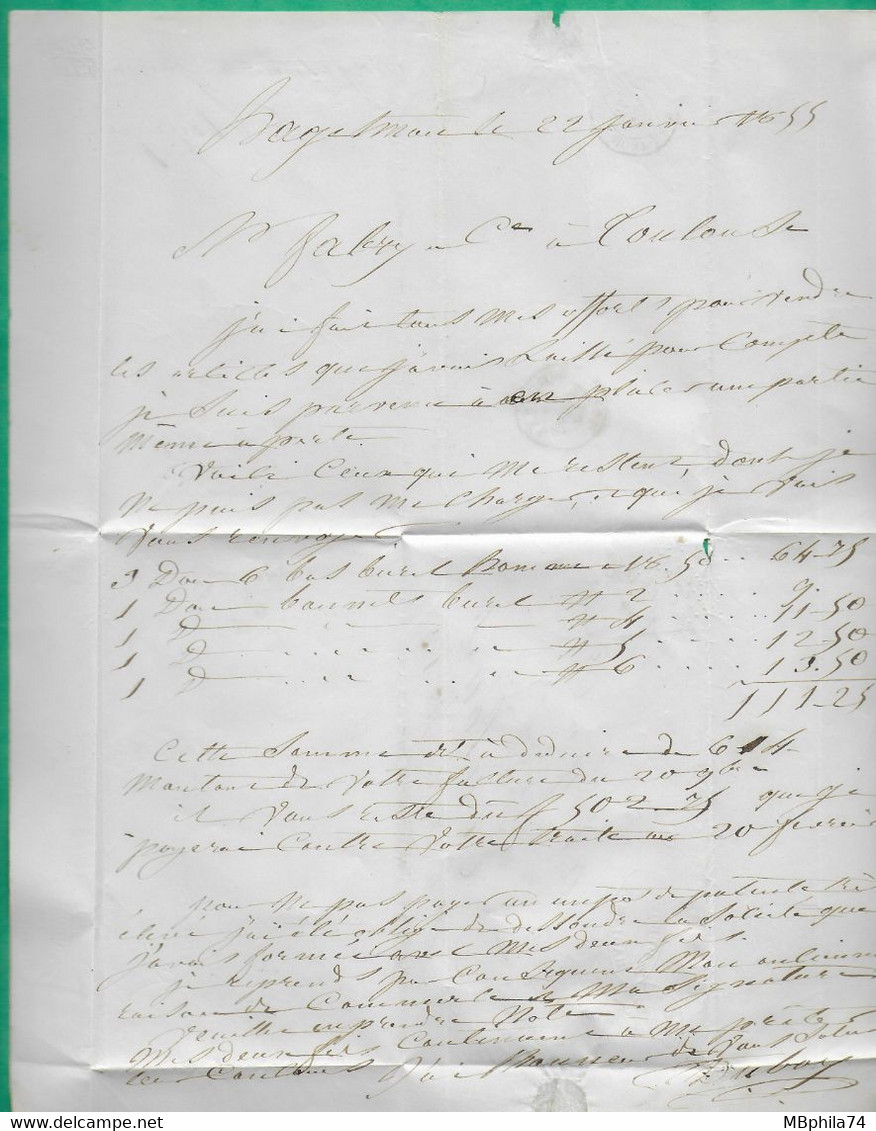 Bagetmau le 22 janvier 1855
Mr Fabry et Cie à Toulouse
j'ai fait tous mes efforts pour vendre
les articles que j'avais laissé pour compte
je suis parvenu à en placer une partie
même à perte.
Voilà ceux qui me restent, dont je
ne puis pas me charger, et que je vais
vous renvoyer
3 Douz 6 bas burel homme a 18.50 .. 64-75
1 Douz bonnets burel # 2 ..... 9.
1 D # 4 ..... 11-50
1 D # 5 ..... 12-50
1 D # 6 .... 13.50
111-25
Cette somme est à déduire de 614-
montant de votre facture du 20 9bre
il vous reste dû f 502-75 que je
payerai contre votre traite au 20 fevrier
pour ne pas payer un impos de patente très
élevé j'ai été obligé de dissoudre la société que
j'avais formée avec mes deux fils.
je reprends par conséquent mon ancienne
raison de commerce et ma signature
veuillez en prendre note
mes deux fils continuent à me prêter
leur concours J'ai l'honneur de vous saluer
Duboy
MBphila74